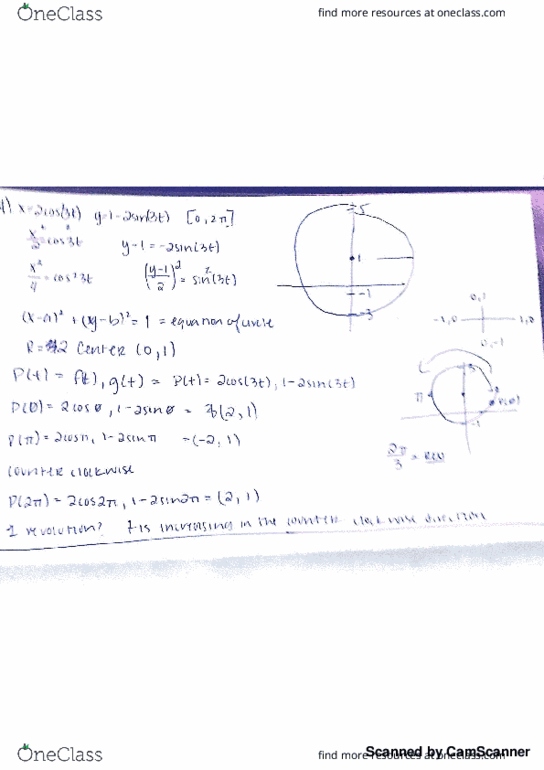 OneClass
find more resources at oneclass.com
1) x=2cos(3t) y=1-2sin(3t) [0,2π]
x/2 = cos3t
y-1=-2sin(3t)
x²/4 = cos²3t
((y-1)/2)² = sin²(3t)
(x-a)² + (y-b)² = 1 = equation of circle
R=2 Center (0,1)
P(t) = f(t), g(t) = P(t) = 2cos(3t), 1-2sin(3t)
P(0) = 2cos0, 1-2sin0 = (2,1)
P(π) = 2cosπ, 1-2sinπ = (-2,1)
counter clockwise
P(2π) = 2cos2π, 1-2sin2π = (2,1)
1 revolution? t is increasing in the counter clockwise direction
5
1
-1
-3
0,1
-1,0
1,0
0,-1
3
π
P(0)
-1
2π/3
OneClass
find more resources at oneclass.com
Scanned by CamScanner